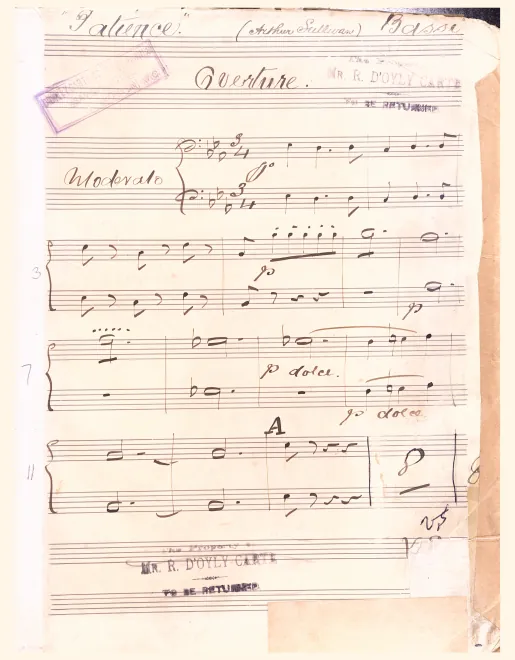 "Patience." (Arthur Sullivan) Bassi
The Property
MR. R. D'OYLY CARTE
TO BE RETURNED
Overture.
Moderato
3
4
p
3
4
3
p
p
7
p dolce.
p dolce.
A
11
8
8
V.S
The Property
MR. R. D'OYLY CARTE
TO BE RETURNED